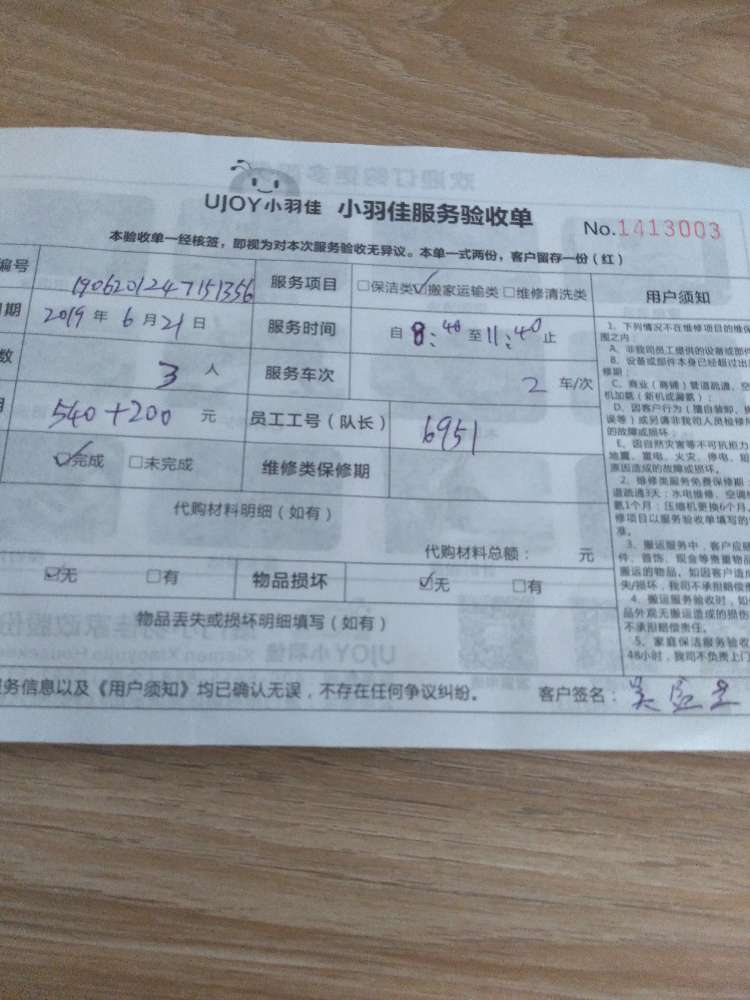 UJOY小羽佳 小羽佳服务验收单 No.1413003
本验收单一经核签，即视为对本次服务验收无异议。本单一式两份，客户留存一份（红）
编号 1906201247151356 服务项目 □保洁类☑搬家运输类□维修清洗类 用户须知
期 2019年6月21日 服务时间 自 8:40 至 11:40 止
数 3 人 服务车次 2 车/次
540+200 元 员工工号（队长） 6951
☑完成 □未完成 维修类保修期
代购材料明细（如有）
代购材料总额： 元
☑无 □有 物品损坏 ☑无 □有
物品丢失或损坏明细填写（如有）
务信息以及《用户须知》均已确认无误，不存在任何争议纠纷。 客户签名：
1、下列情况不在维修项目的维保
围之内：
A、非我司员工提供的设备或部件
B、设备或部件本身已经超过出
修期；
C、商业（商铺）管道疏通、空
机加氨（新机或漏氨）；
D、因客户行为（擅自装卸、
误等）或另请非我司人员检修
的故障或损坏；
E、因自然灾害等不可抗拒力
地震、雷电、火灾、停电、
原因造成的故障或损坏。
2、维修类服务免费保修期：
道疏通3天；水电维修、空调
氨1个月；压缩机更换6个月，
修项目以服务验收单填写的
准。
3、搬运服务中，客户应
件、首饰、现金等贵重物品
搬运的物品，如因客户造成
失/损坏，我司不承担赔偿责
4、搬运服务验收时，如
品外观无搬运造成的损伤
不承担赔偿责任。
5、家庭保洁服务验收
48小时，我司不负责上门